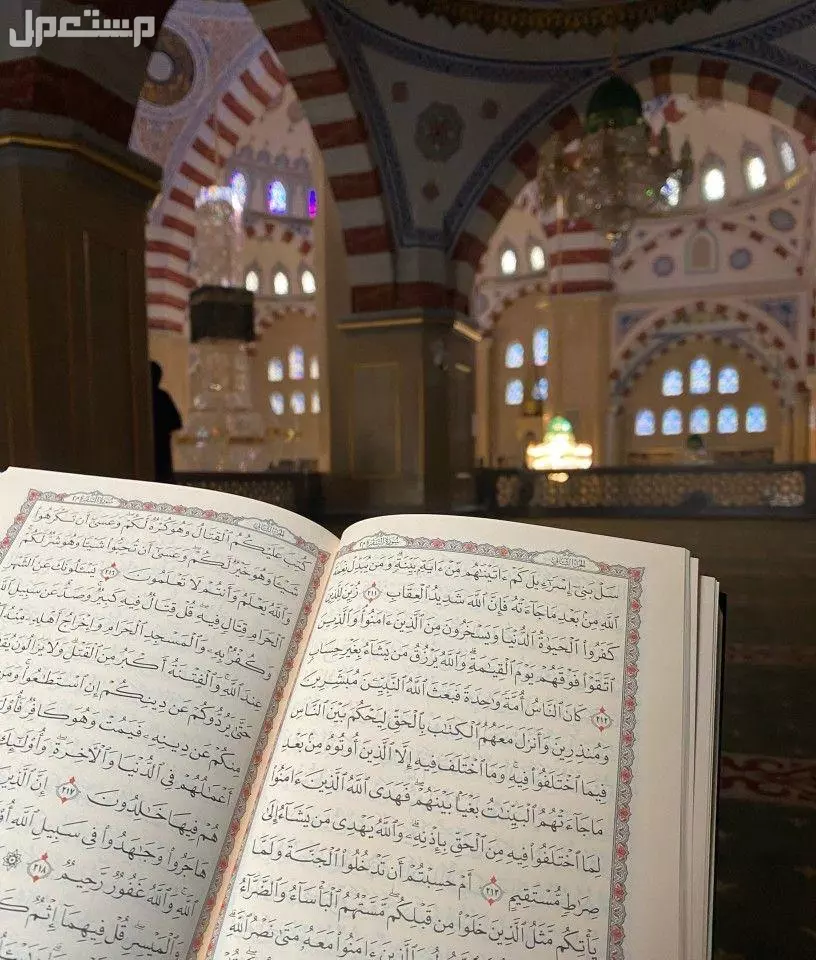 مستعمل
الجزء الثاني
سورة البقرة
سَلْ بَنِىٓ إِسْرَٰٓءِيلَ كَمْ ءَاتَيْنَٰهُم مِّنْ ءَايَةٍۭ بَيِّنَةٍ وَمَن يُبَدِّلْ نِعْمَةَ
ٱللَّهِ مِنۢ بَعْدِ مَا جَآءَتْهُ فَإِنَّ ٱللَّهَ شَدِيدُ ٱلْعِقَابِ ٢١١ زُيِّنَ لِلَّذِينَ
كَفَرُوا۟ ٱلْحَيَوٰةُ ٱلدُّنْيَا وَيَسْخَرُونَ مِنَ ٱلَّذِينَ ءَامَنُوا۟ وَٱلَّذِينَ
ٱتَّقَوْا۟ فَوْقَهُمْ يَوْمَ ٱلْقِيَٰمَةِ وَٱللَّهُ يَرْزُقُ مَن يَشَآءُ بِغَيْرِ حِسَابٍ
٢١٢ كَانَ ٱلنَّاسُ أُمَّةً وَٰحِدَةً فَبَعَثَ ٱللَّهُ ٱلنَّبِيِّـۧنَ مُبَشِّرِينَ
وَمُنذِرِينَ وَأَنزَلَ مَعَهُمُ ٱلْكِتَٰبَ بِٱلْحَقِّ لِيَحْكُمَ بَيْنَ ٱلنَّاسِ
فِيمَا ٱخْتَلَفُوا۟ فِيهِ وَمَا ٱخْتَلَفَ فِيهِ إِلَّا ٱلَّذِينَ أُوتُوهُ مِنۢ بَعْدِ
مَا جَآءَتْهُمُ ٱلْبَيِّنَٰتُ بَغْيًۢا بَيْنَهُمْ فَهَدَى ٱللَّهُ ٱلَّذِينَ ءَامَنُوا۟
لِمَا ٱخْتَلَفُوا۟ فِيهِ مِنَ ٱلْحَقِّ بِإِذْنِهِۦ وَٱللَّهُ يَهْدِى مَن يَشَآءُ إِلَىٰ
صِرَٰطٍ مُّسْتَقِيمٍ ٢١٣ أَمْ حَسِبْتُمْ أَن تَدْخُلُوا۟ ٱلْجَنَّةَ وَلَمَّا
يَأْتِكُم مَّثَلُ ٱلَّذِينَ خَلَوْا۟ مِن قَبْلِكُم مَّسَّتْهُمُ ٱلْبَأْسَآءُ وَٱلضَّرَّآءُ
ٱلَّذِينَ ءَامَنُوا۟ مَعَهُۥ مَتَىٰ نَصْرُ ٱللَّهِ
الجزء الثاني
سورة البقرة
كُتِبَ عَلَيْكُمُ ٱلْقِتَالُ وَهُوَ كُرْهٌ لَّكُمْ وَعَسَىٰٓ أَن تَكْرَهُوا۟
شَيْـًٔا وَهُوَ خَيْرٌ لَّكُمْ وَعَسَىٰٓ أَن تُحِبُّوا۟ شَيْـًٔا وَهُوَ شَرٌّ لَّكُمْ
وَٱللَّهُ يَعْلَمُ وَأَنتُمْ لَا تَعْلَمُونَ ٢١٦ يَسْـَٔلُونَكَ عَنِ ٱلشَّهْرِ
ٱلْحَرَامِ قِتَالٍ فِيهِ قُلْ قِتَالٌ فِيهِ كَبِيرٌ وَصَدٌّ عَن سَبِيلِ
وَكُفْرٌۢ بِهِۦ وَٱلْمَسْجِدِ ٱلْحَرَامِ وَإِخْرَاجُ أَهْلِهِۦ مِنْهُ
عِندَ ٱللَّهِ وَٱلْفِتْنَةُ أَكْبَرُ مِنَ ٱلْقَتْلِ وَلَا يَزَالُونَ
حَتَّىٰ يَرُدُّوكُمْ عَن دِينِكُمْ إِنِ ٱسْتَطَٰعُوا۟
مِنكُمْ عَن دِينِهِۦ فَيَمُتْ وَهُوَ كَافِرٌ
أَعْمَٰلُهُمْ فِى ٱلدُّنْيَا وَٱلْءَاخِرَةِ وَأُو۟لَٰٓئِكَ
هُمْ فِيهَا خَٰلِدُونَ ٢١٧ إِنَّ ٱلَّذِينَ
هَاجَرُوا۟ وَجَٰهَدُوا۟ فِى سَبِيلِ ٱللَّهِ
ٱللَّهِ وَٱللَّهُ غَفُورٌ رَّحِيمٌ ٢١٨
وَٱلْمَيْسِرِ قُلْ فِيهِمَآ إِثْمٌ